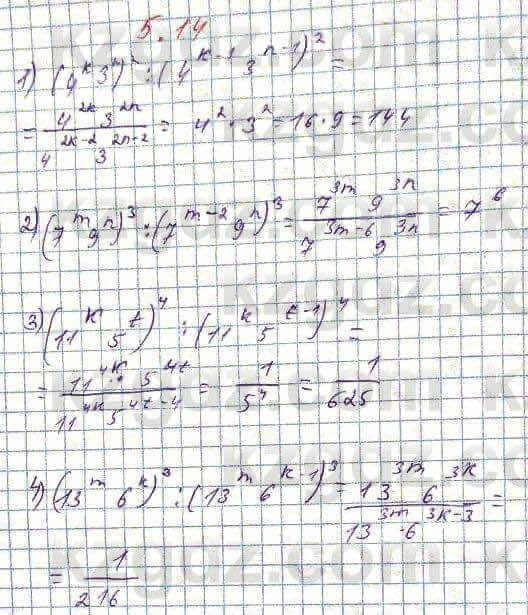 5.14
1) (4^k 3^n)^2 : (4^{k-1} 3^{n-1})^2 =
= \frac{4^{2k} 3^{2n}}{4^{2k-2} 3^{2n-2}} = 4^2 · 3^2 = 16 · 9 = 144
2) (7^m 9^n)^3 : (7^{m-2} 9^n)^3 = \frac{7^{3m} 9^{3n}}{7^{3m-6} 9^{3n}} = 7^6
3) (11^k 5^t)^4 : (11^k 5^{t-1})^4 =
= \frac{11^{4k} · 5^{4t}}{11^{4k} 5^{4t-4}} = \frac{1}{5^4} = \frac{1}{625}
4) (13^m 6^k)^3 : (13^m 6^{k-1})^3 = \frac{13^{3m} 6^{3k}}{13^{3m} · 6^{3k-3}} =
= \frac{1}{216}